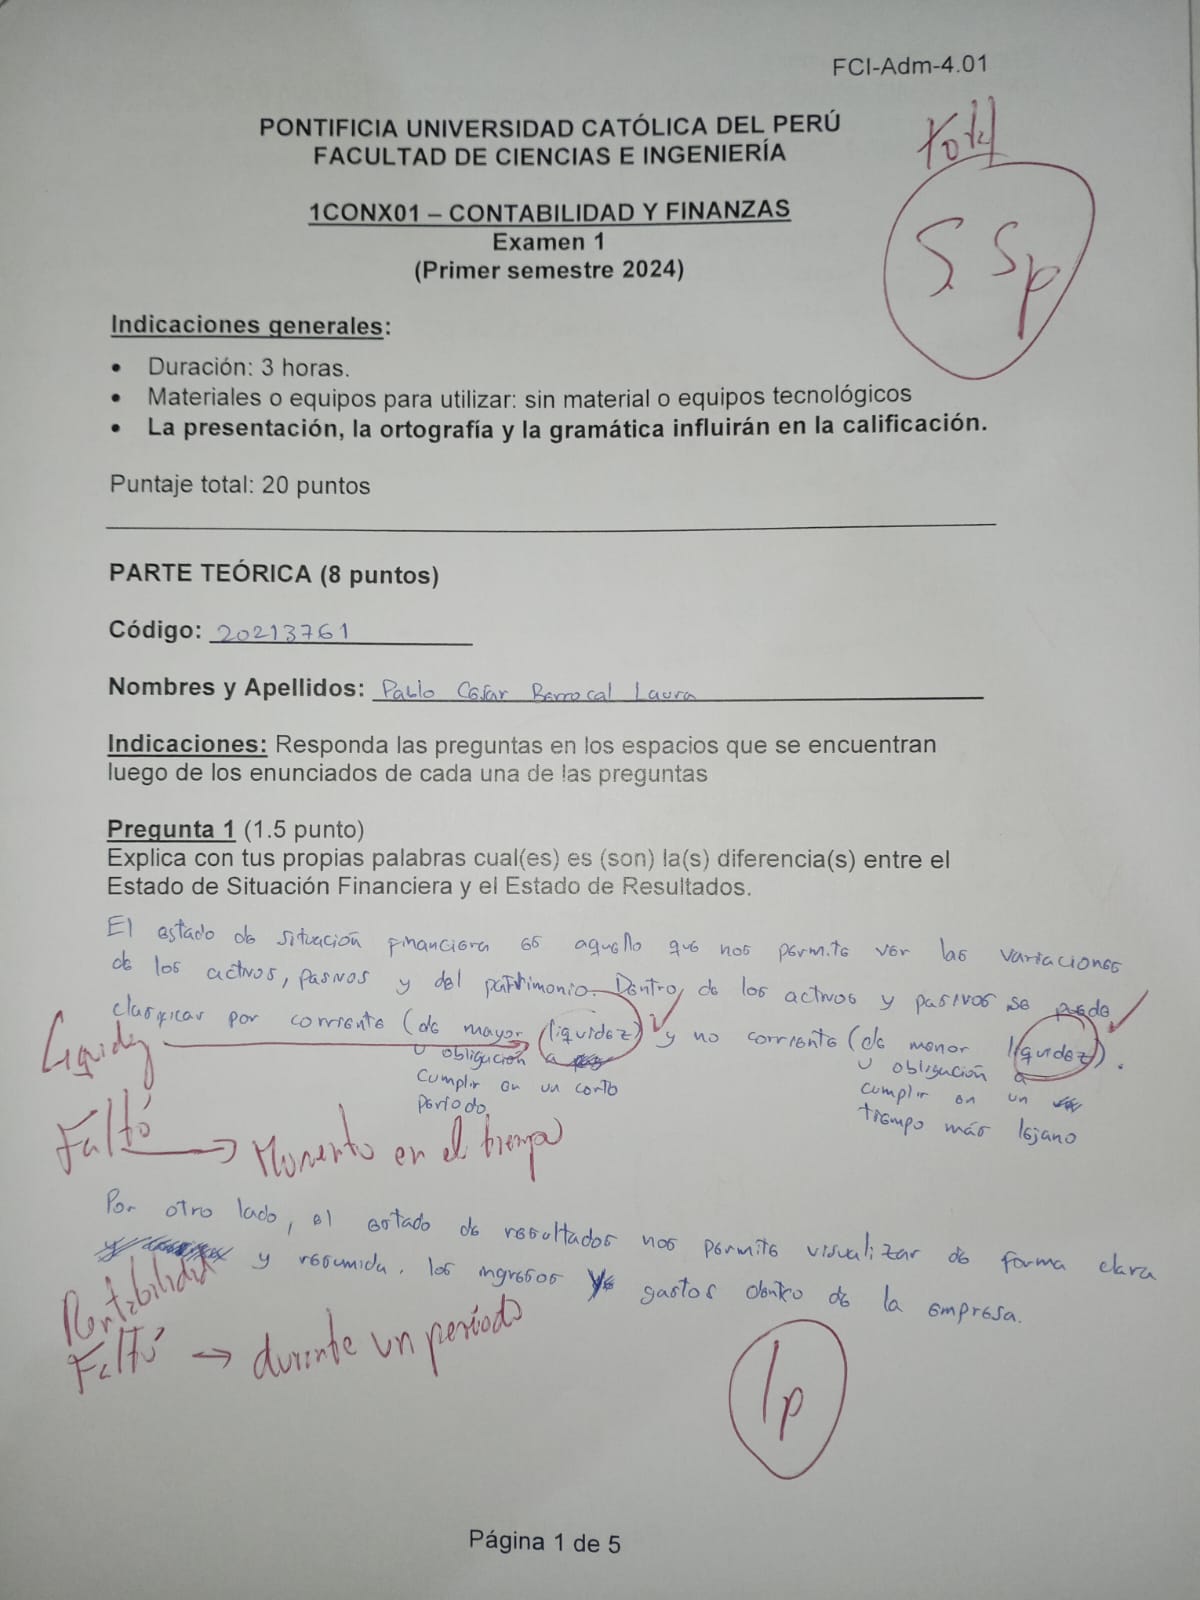 FCI-Adm-4.01
PONTIFICIA UNIVERSIDAD CATÓLICA DEL PERÚ
FACULTAD DE CIENCIAS E INGENIERÍA
Total
5.5p
1CONX01 – CONTABILIDAD Y FINANZAS
Examen 1
(Primer semestre 2024)
Indicaciones generales:
• Duración: 3 horas.
• Materiales o equipos para utilizar: sin material o equipos tecnológicos
• La presentación, la ortografía y la gramática influirán en la calificación.
Puntaje total: 20 puntos
PARTE TEÓRICA (8 puntos)
Código: 20213761
Nombres y Apellidos: Pablo César Berrocal Laura
Indicaciones: Responda las preguntas en los espacios que se encuentran
luego de los enunciados de cada una de las preguntas
Pregunta 1 (1.5 punto)
Explica con tus propias palabras cual(es) es (son) la(s) diferencia(s) entre el
Estado de Situación Financiera y el Estado de Resultados.
El estado de situación financiera es aquello que nos permite ver las variaciones
de los activos, pasivos y del patrimonio. Dentro de los activos y pasivos se puede
clasificar por corriente (de mayor liquidez) y no corriente (de menor liquidez).
u obligación a
cumplir en un corto
periodo.
u obligación a
cumplir en un
tiempo más lejano
Liquidez
Faltó → Momento en el tiempo
Por otro lado, el estado de resultados nos permite visualizar de forma clara
y resumida, los ingresos y gastos dentro de la empresa.
Rentabilidad
Faltó → durante un período
1p
Página 1 de 5